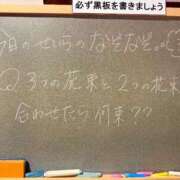 必ず黒板を書きましょう
今日のせいらのなぞなぞ。
Q 3つの花束と2つの花束
合わせたら何束??